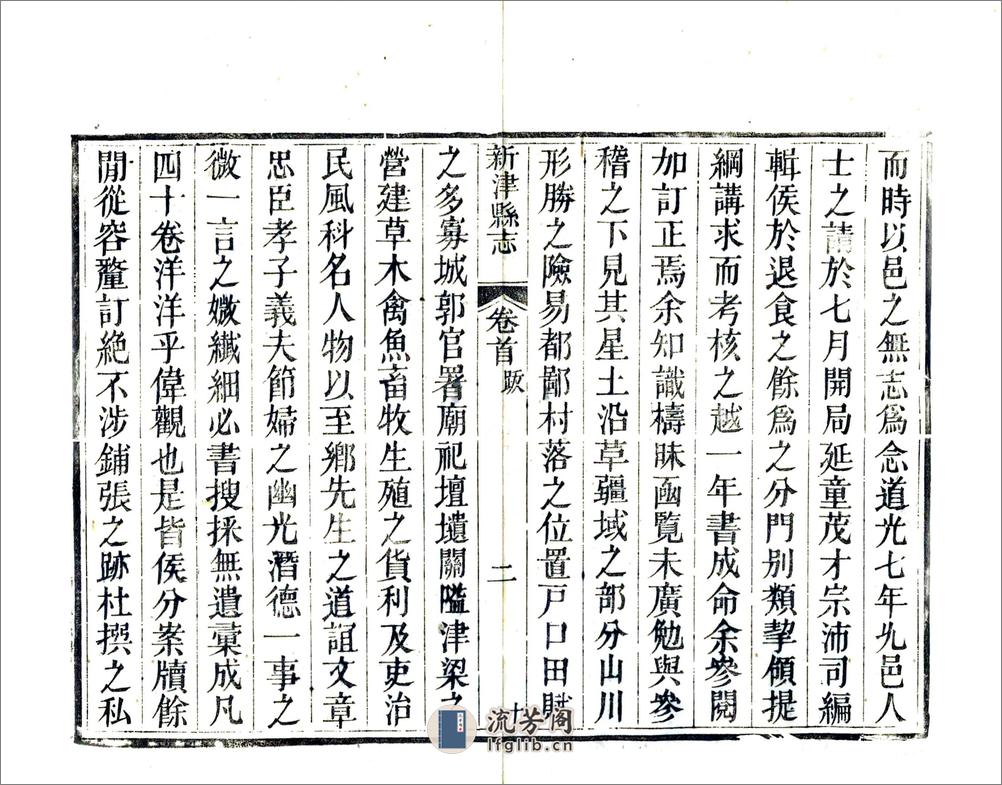 而時以邑之無志為念道光七年允邑人
士之請於七月開局延童茂才宗沛司編
輯侯於退食之餘為之分門別類挈領提
綱講求而考核之越一年書成命余參閱
加訂正焉余知識檮昧函覽未廣勉與參
稽之下見其星土沿革疆域之部分山川
形勝之險易都鄙村落之位置戸口田賦
新津縣志 卷首 跋 二 十
之多寡城郭官署廟祀壇壝關隘津梁之
營建草木禽魚畜牧生殖之貨利及吏治
民風科名人物以至鄉先生之道誼文章
忠臣孝子義夫節婦之幽光潛德一事之
微一言之媺纖細必書搜採無遺彙成凡
四十卷洋洋乎偉觀也是皆侯分案牘餘
閒從容釐訂絶不涉鋪張之跡杜撰之私
流芳阁
lfglib.cn